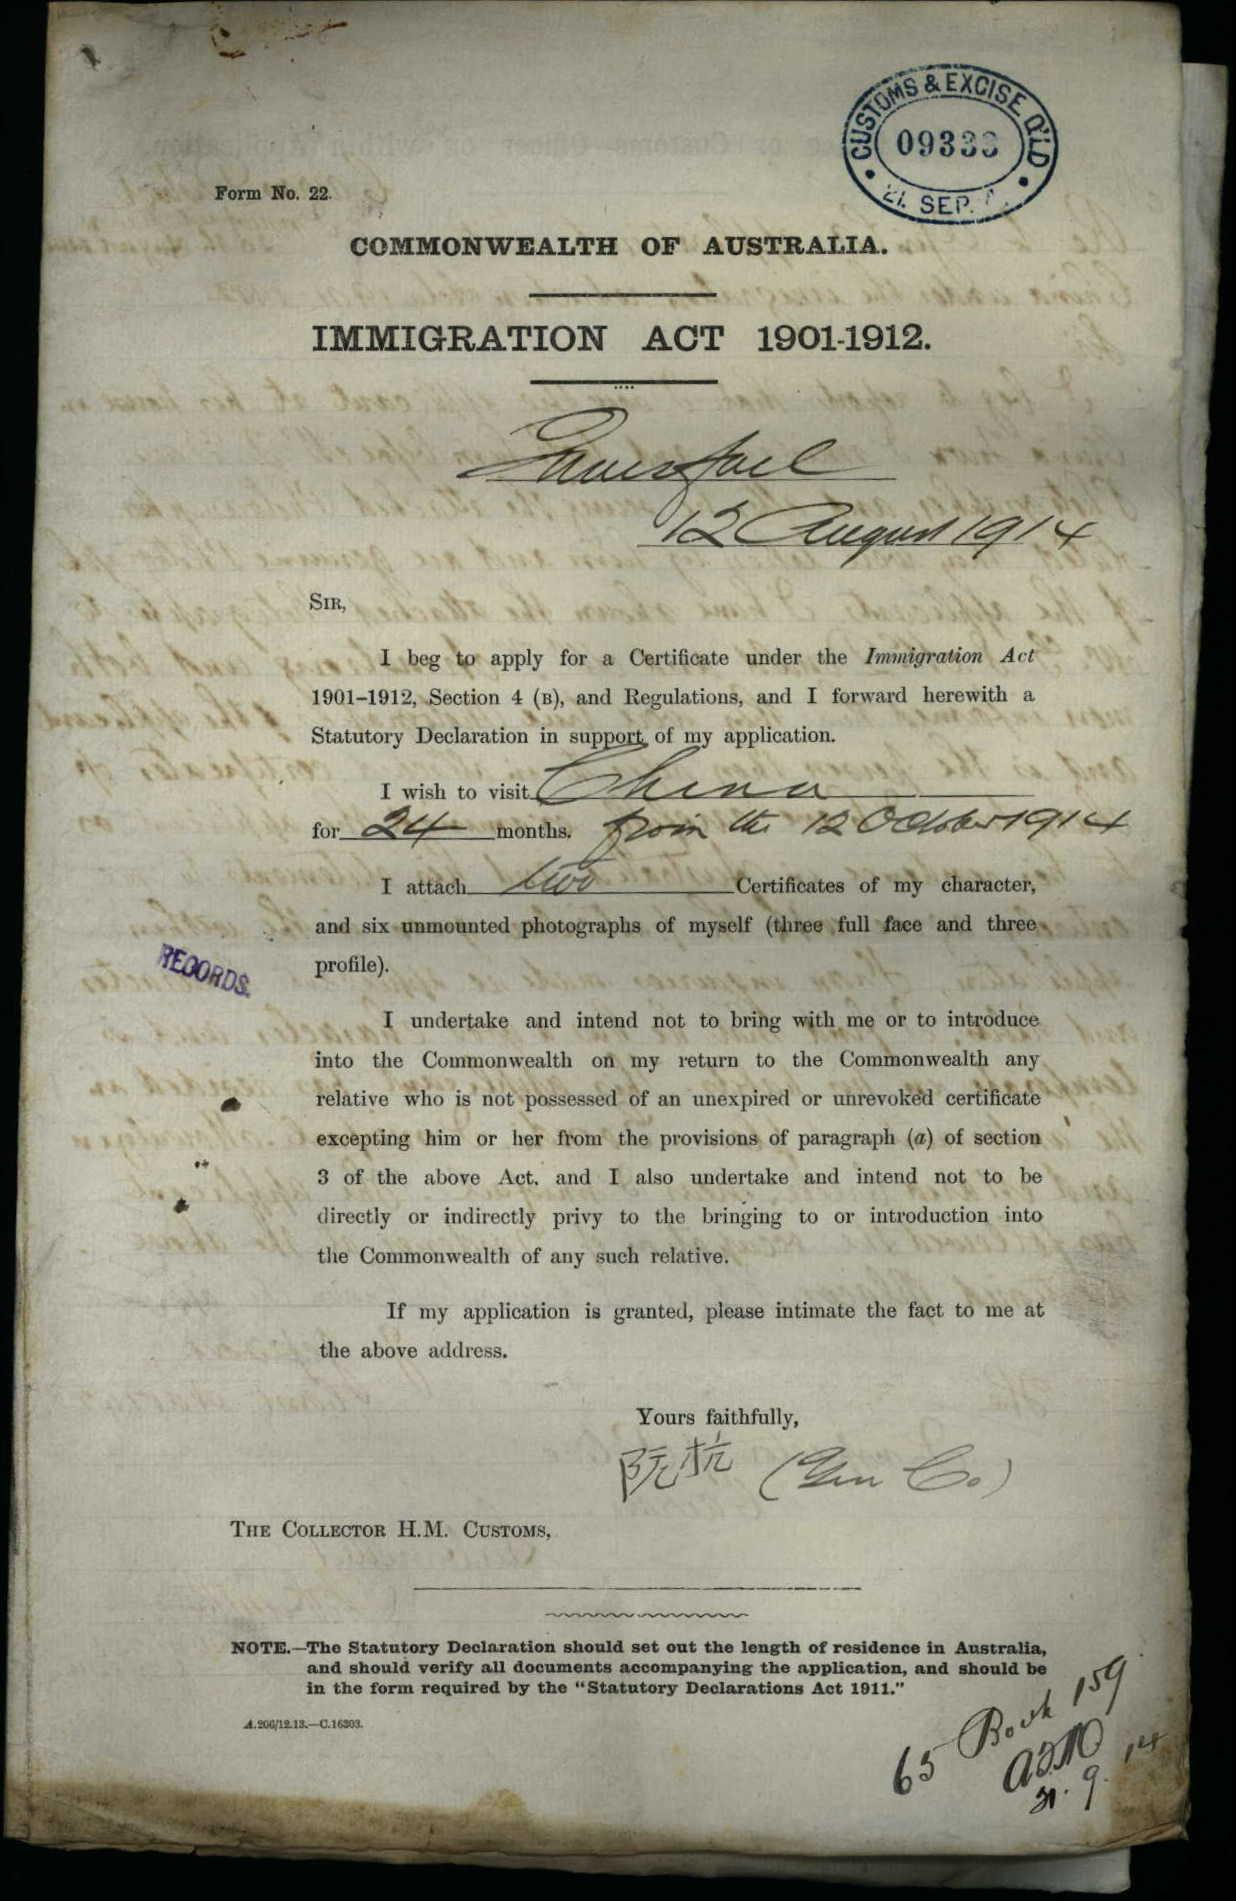 CUSTOMS & EXCISE Q'LD
09333
21. SEP.
Form No. 22.
COMMONWEALTH OF AUSTRALIA.
IMMIGRATION ACT 1901-1912.
Innisfail
12 August 1914
SIR,
I beg to apply for a Certificate under the Immigration Act
1901–1912, Section 4 (B), and Regulations, and I forward herewith a
Statutory Declaration in support of my application.
I wish to visit China
for 24 months. from the 12 October 1914
I attach two Certificates of my character,
and six unmounted photographs of myself (three full face and three
profile).
RECORDS.
I undertake and intend not to bring with me or to introduce
into the Commonwealth on my return to the Commonwealth any
relative who is not possessed of an unexpired or unrevoked certificate
excepting him or her from the provisions of paragraph (a) of section
3 of the above Act, and I also undertake and intend not to be
directly or indirectly privy to the bringing to or introduction into
the Commonwealth of any such relative.
If my application is granted, please intimate the fact to me at
the above address.
Yours faithfully,
阮杭 (Yun Co.)
THE COLLECTOR H.M. CUSTOMS,
NOTE.—The Statutory Declaration should set out the length of residence in Australia,
and should verify all documents accompanying the application, and should be
in the form required by the "Statutory Declarations Act 1911."
A.206/12.13.—C.16303.
65 Book 159
21.9.14